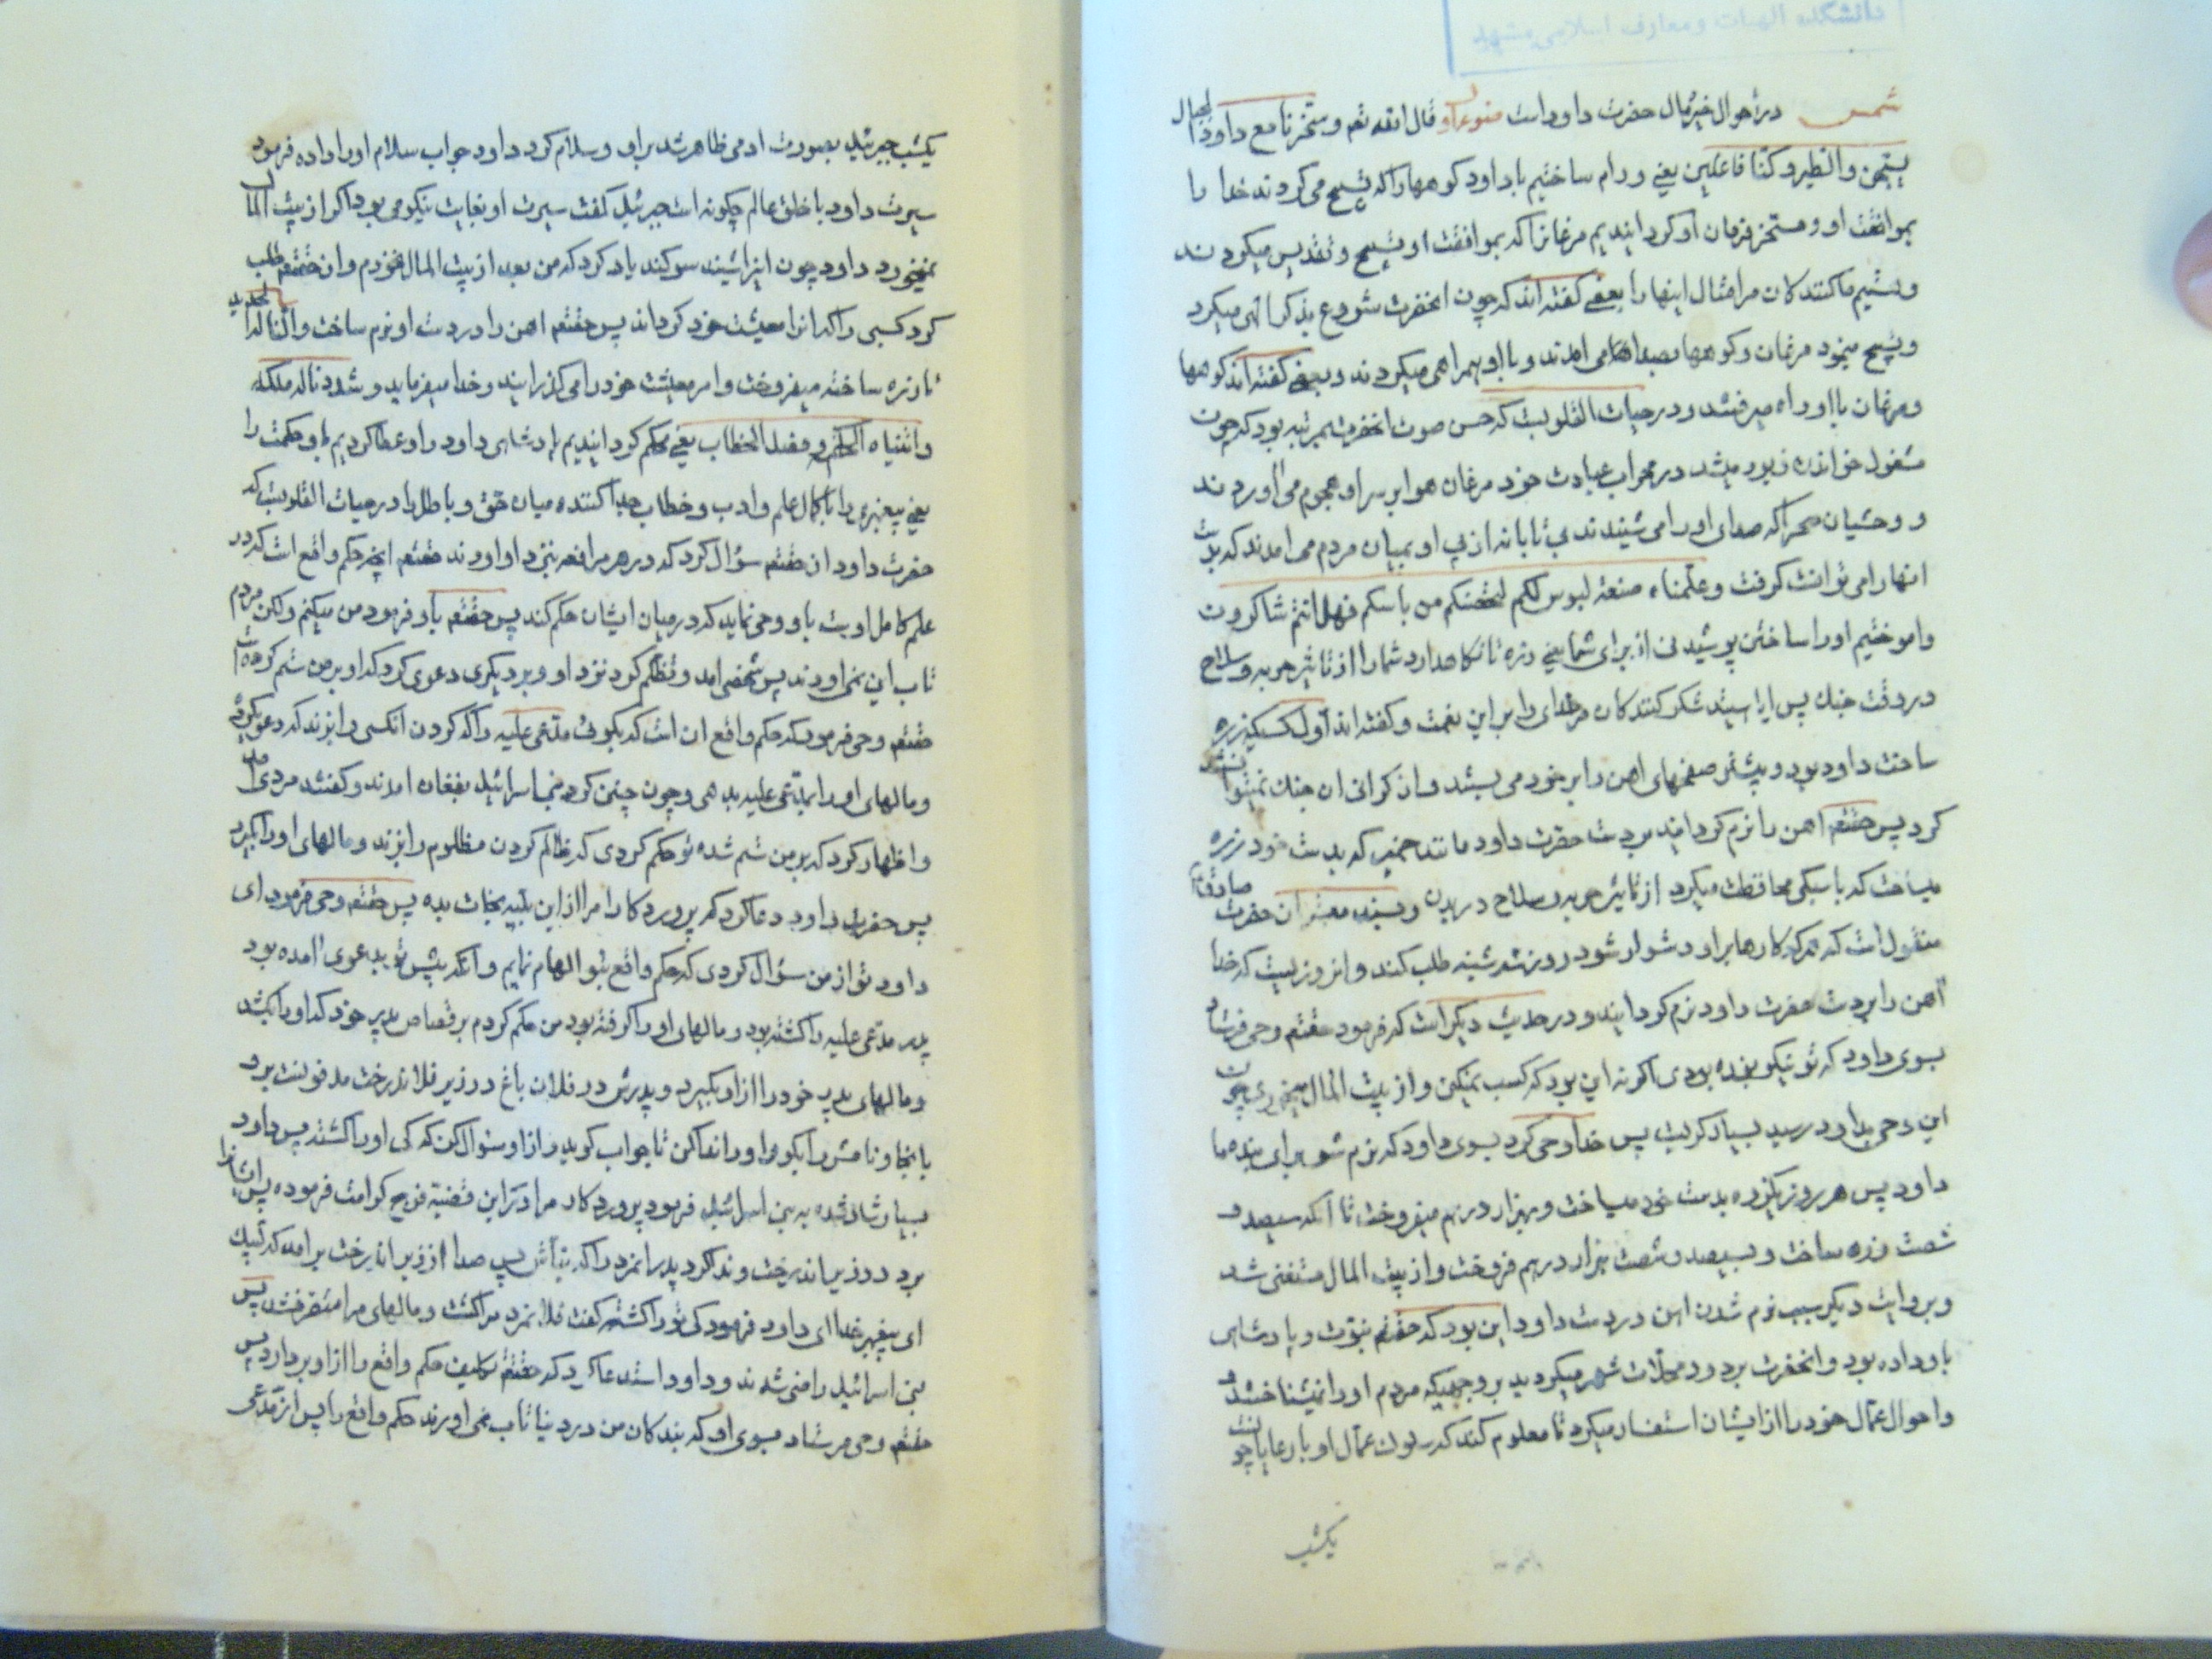 دانشکده الهیات و معارف اسلامی مشهد
شمس در احوال حضرت داود است قال الله تعم و سخرنا مع داود الجبال
یسبحن والطیر و کنا فاعلین یعنی و رام ساختیم با داود کوهها را که تسبیح می کردند خدا را
بموافقت او و مسخر فرمان او کردانیدیم مرغانرا که بموافقت او تسبیح و تقدیس میکردند
و هستیم ما کنندکان مر امثال اینها را بعضی کفته اند که چون انحضرت شروع بذکر الهی میکرد
و تسبیح مینمود مرغان و کوهها بصدا می امدند و با او همراهی میکردند و بعضی کفته اند کوهها
و مرغان با او راه میرفتند و در حیات القلوبست که حسن صوت انحضرت بمرتبه بود که چون
مشغول خواندن زبور میشد در محراب عبادت خود مرغان هوا بر سر او هجوم می اوردند
و وحشیان صحرا که صدای او را می شنیدند بی تابانه از پی او بمیان مردم می امدند که بدست
انها را می توانست کرفت و علمناه صنعة لبوس لکم لتحصنکم من باسکم فهل انتم شاکرون
و اموختیم او را ساختن پوشیدنی از برای شما یعنی زره تا نکاهدارد شما را از تاثیر حربه و سلاح
در وقت جنک پس ایا هستید شکر کنندکان مر خدای را بر این نعمت و کفته اند اول کسیکه زره
ساخت داود بود و پیشتر صفحهای اهن را بر خود می بستند و از کرانی ان جنک نمیتوانستند
کرد پس حقتعم اهن را نرم کردانید بر دست حضرت داود مانند خمیر که بدست خود زره
میساخت که باسبکی محافظت میکرد از تاثیر حربه و سلاح در بدن و بسند معتبر از حضرت صادق
منقول است که هر که کارها بر او دشوار شود روز سه شنبه طلب کند و ان روزیست که خدا
اهن را بر دست حضرت داود نرم کردانید و در حدیث دیکر است که فرمود حقتعم وحی فرستاد
بسوی داود که تو نیکو بنده بودی اکر نه این بود که کسب نمیکنی و از بیت المال میخوری چون
این وحی بداود رسید بسیار کریست پس خدا وحی کرد بسوی اهن که نرم شو برای بنده ما
داود پس هر روز یکزره بدست خود میساخت و بهزار درهم میفروخت تا انکه سیصد و
شصت زره ساخت و بسیصد و شصت هزار درهم فروخت و از بیت المال مستغنی شد
و بروایت دیکر سبب نرم شدن اهن در دست داود این بود که حقتعم نبوت و پادشاهی
باو داده بود و انحضرت بر دور محلات شهر میکردید بر وجهیکه مردم او را نمیشناختند و
و احوال عمال خود را از ایشان استفسار میکرد تا معلوم کند که سلوک عمال او با رعایا چونست
یکشب
یکشب جبرئیل بصورت ادمی ظاهر شد بر او و سلام کرد داود جواب سلام او را داده فرمود
سیرت داود با خلق عالم چکونه است جبرئیل کفت سیرت او بغایت نیکو می بود اکر از بیت المال
نمیخورد داود چون اینرا شنید سوکند یاد کرد که من بعد از بیت المال نخورم و از حقتعم طلب
کرد کسبی را که انرا معیشت خود کرداند پس حقتعم اهن را در دست او نرم ساخت و النا له الحدید
تا زره ساخته میفروخت و امر معیشت خود را می کذرانید و خدا میفرماید و شددنا له ملکه
و اتیناه الحکمة و فصل الخطاب یعنی محکم کردانیدیم پادشاهی داود را و عطا کردیم باو حکمت را
یعنی پیغمبری را با کمال علم و ادب و خطاب جدا کننده میان حق و باطل را در حیات القلوبست که
حضرت داود از حقتعم سؤال کرد که در هر مرافعه بنزد او اورند حقتعم انچه حکم واقع است که در
علم کامل اوست باو وحی نماید که در میان ایشان حکم کند پس حقتعم باو فرمود من میکنم ولکن مردم
تاب این نمی اورند پس شخصی امد و تظلم کرد نزد او و بر دیکری دعوی کرد که او بر من ستم کرده است
حقتعم وحی فرمود که حکم واقع ان است که بکوئی مدعی علیه را که کردن انکسی را بزند که دعوی کرده
و مالهای او را بمدعی علیه بدهی و چون چنین کرد بنی اسرائیل بفغان امدند و کفتند مردی امد
و اظهار کرد که بر من ستم شده تو حکم کردی که ظالم کردن مظلوم را بزند و مالهای او را بکیرد
پس حضرت داود دعا کرد که پروردکارا مرا از این بلیه نجات بده پس حقتعم وحی فرمود ای
داود تو از من سؤال کردی که حکم واقع بتو الهام نمایم و انکه پیش تو بدعوی امده بود
پدر مدعی علیه را کشته بود و مالهای او را کرفته بود من حکم کردم بر قصاص پدر خود که او را بکشد
و مالهای پدر خود را از او بکیرد و پدرش در فلان باغ در زیر فلان درخت مدفونست برو
بانجا و نامش را بکو و او را ندا کن تا جواب کوید و از او سئوال کن که کی او را کشته پس داود
بسیار شاد شده به بنی اسرائیل فرمود پروردکار مرا در این قضیه فرج کرامت فرموده پس ایشانرا
برد در زیر ان درخت و ندا کرد پدر انمرد را که بنامش پس صدا از زیر ان درخت بر امد که لبیک
ای پیغمبر خدا ای داود فرمود کی تو را کشته کفت فلان مرد مرا کشت و مالهای مرا متصرف شد پس
بنی اسرائیل راضی شدند و داود استدعا کرد که حقتعم تکلیف حکم واقع را از او بردارد پس
حقتعم وحی فرستاد بسوی او که بندکان من در دنیا تاب نمی اورند حکم واقع را پس از مدعی